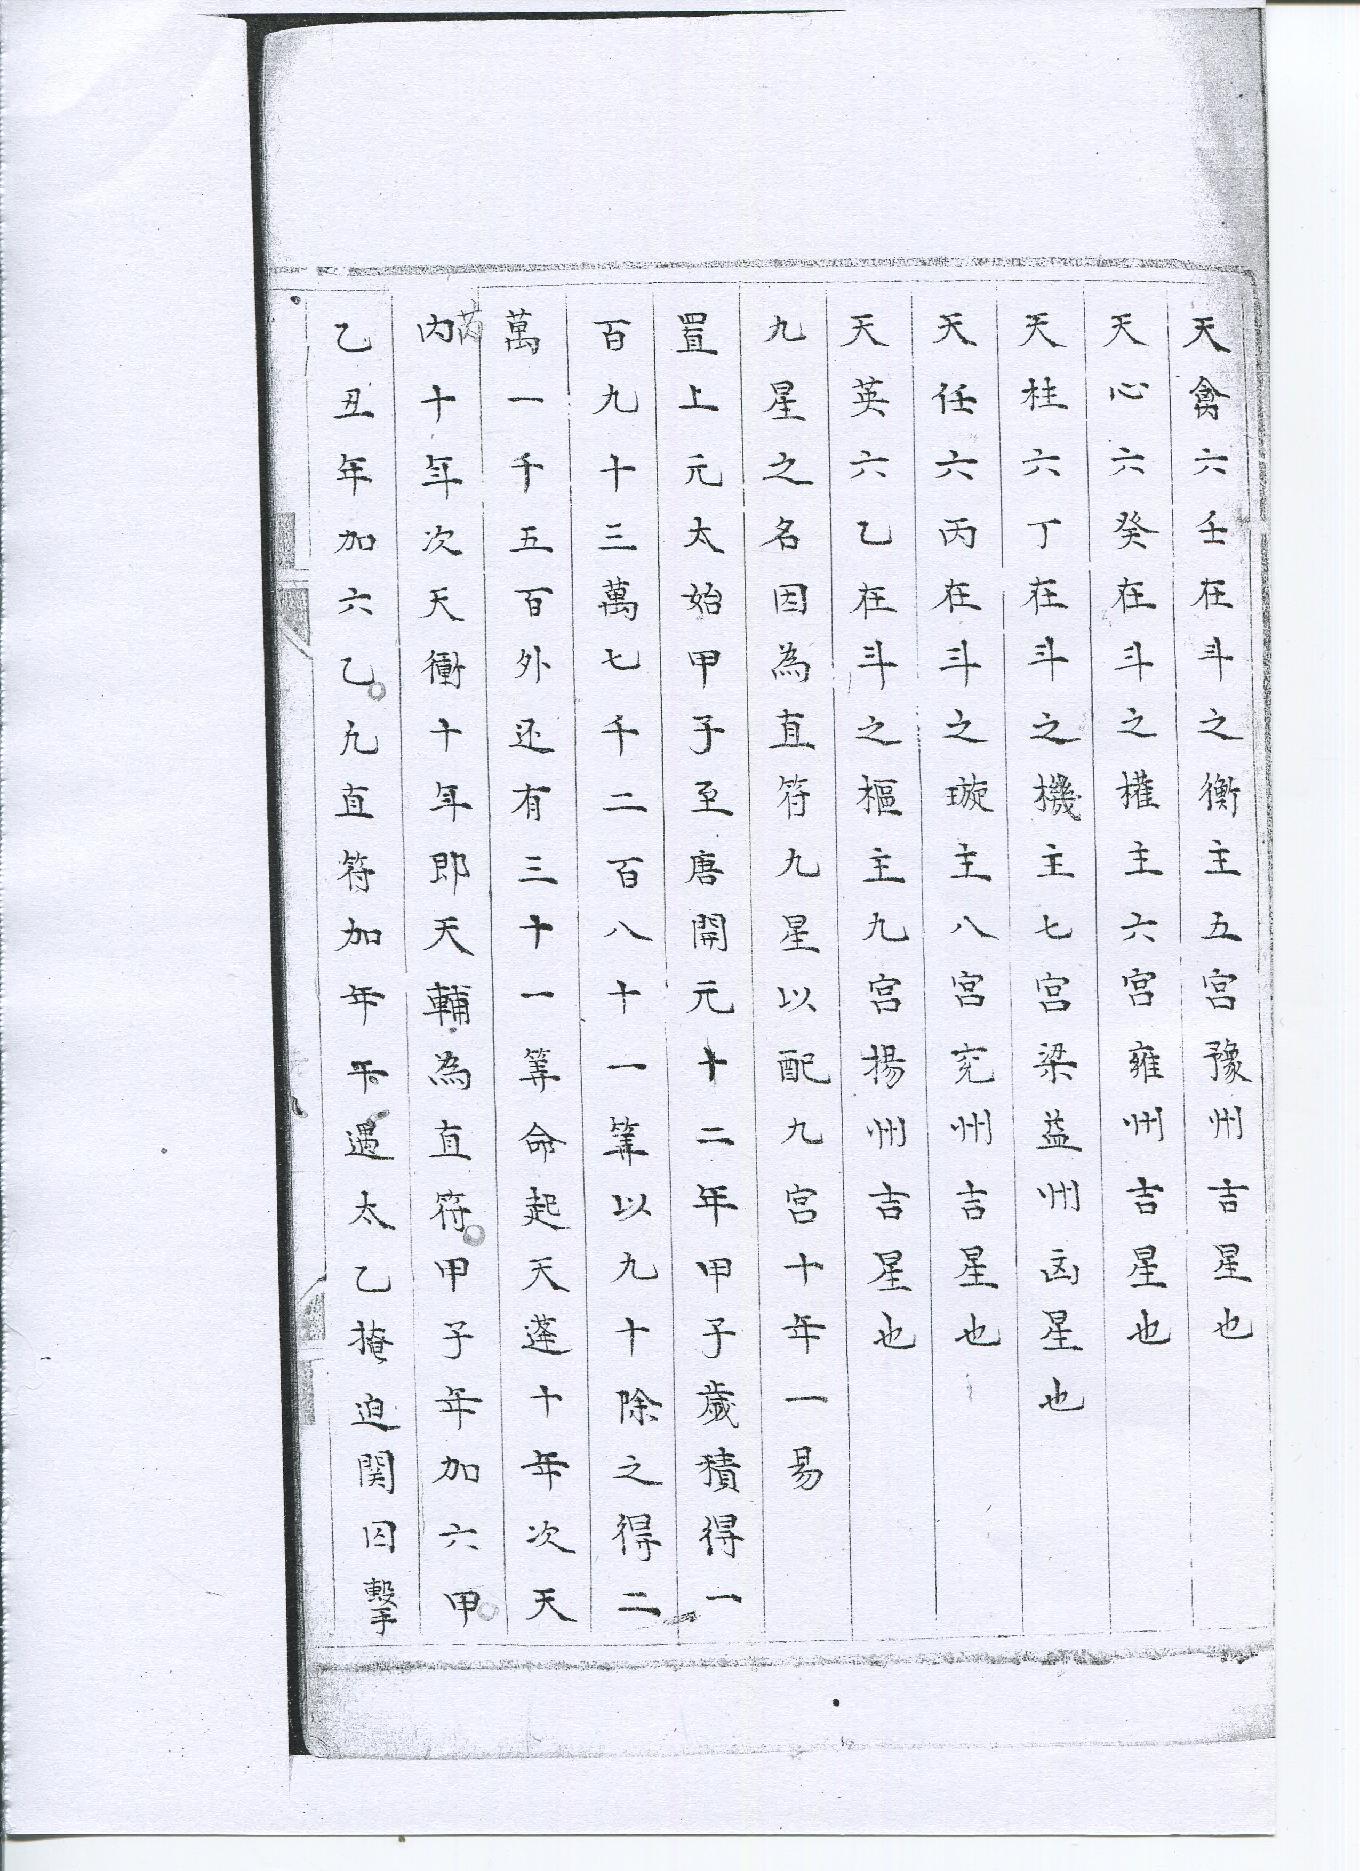 天禽六壬在斗之衡主五宮豫州吉星也
天心六癸在斗之權主六宮雍州吉星也
天柱六丁在斗之機主七宮梁益州凶星也
天任六丙在斗之璇主八宮兖州吉星也
天英六乙在斗之樞主九宮揚州吉星也
九星之名因為直符九星以配九宮十年一易
置上元太始甲子至唐開元十二年甲子歲積得一
百九十三萬七千二百八十一筭以九十除之得二
萬一千五百外还有三十一筭命起天蓬十年次天
芮
內十年次天衝十年即天輔為直符甲子年加六甲
乙丑年加六乙九直符加年干遇太乙掩迫関囚擊